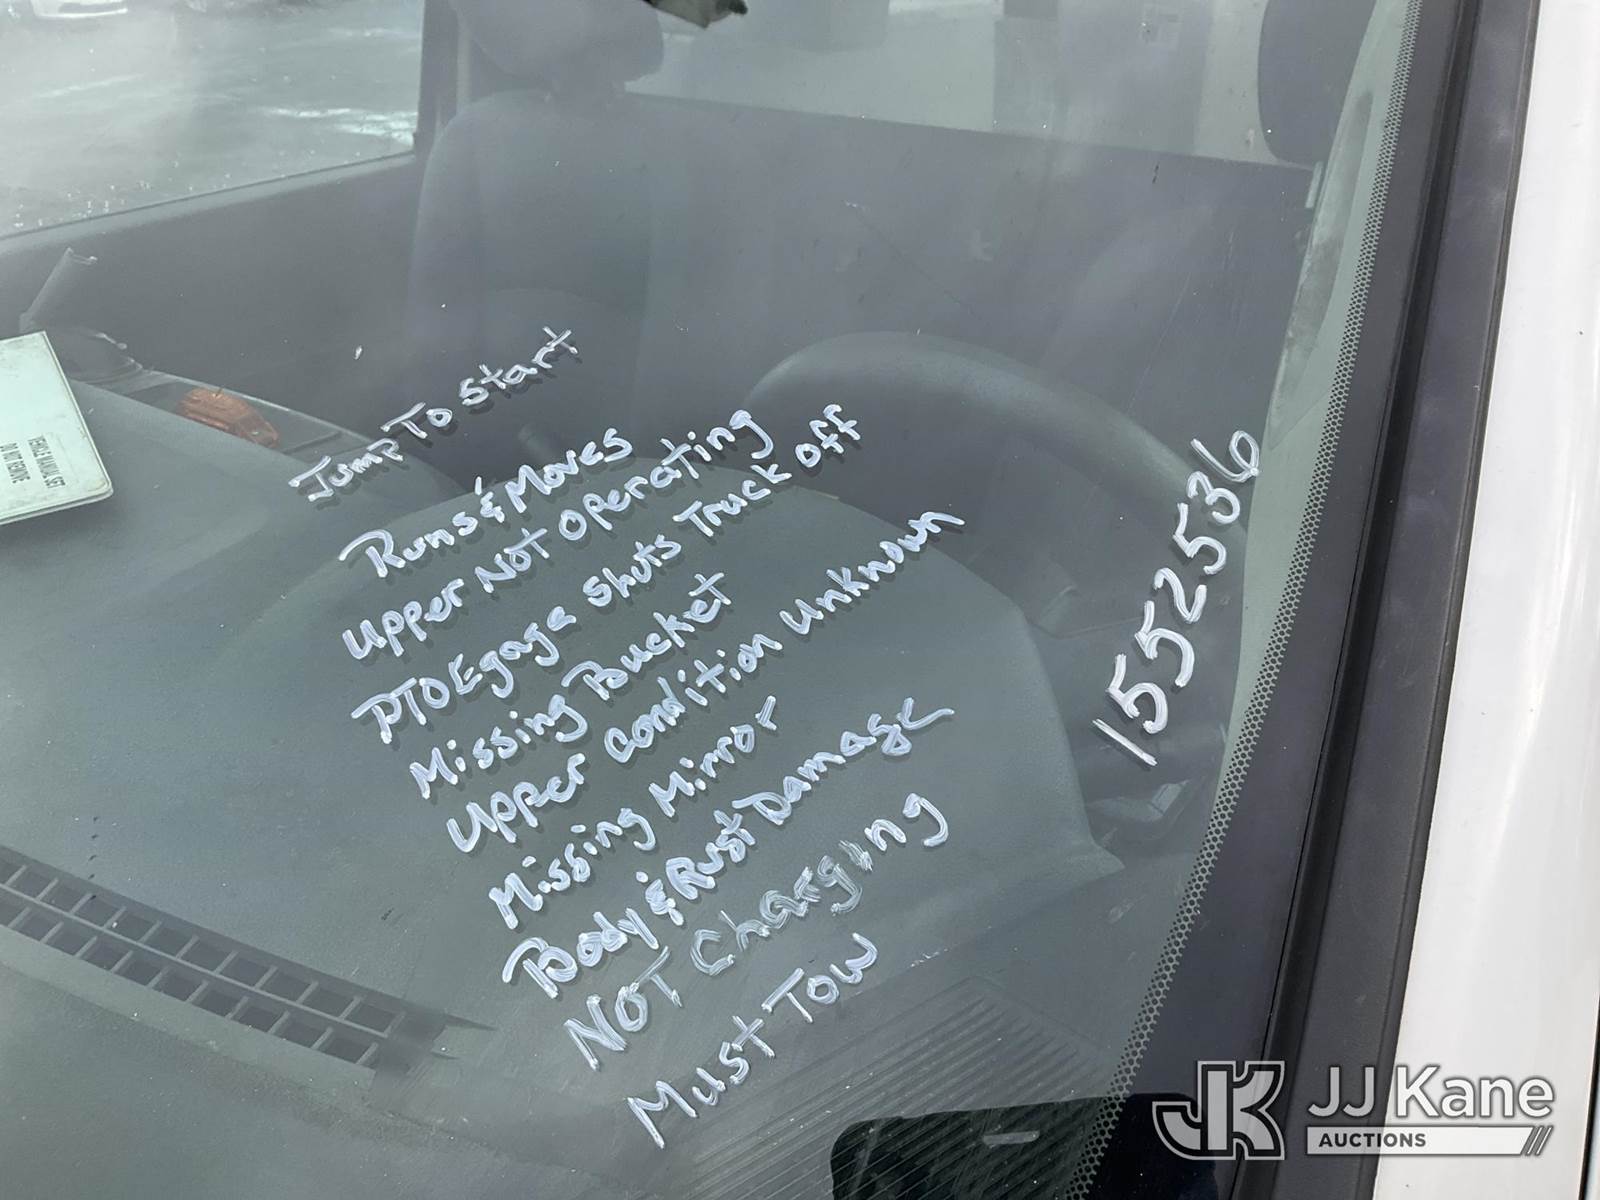 Jump To Start
Runs & Moves
Upper Not Operating
PTO Egage shuts Truck off
Missing Bucket
Upper Condition Unknown
Missing Mirror
Body & Rust Damage
NOT Charging
Must Tow
1552536
VEHICLE MANUAL SET
DO NOT REMOVE
JK JJ Kane
AUCTIONS